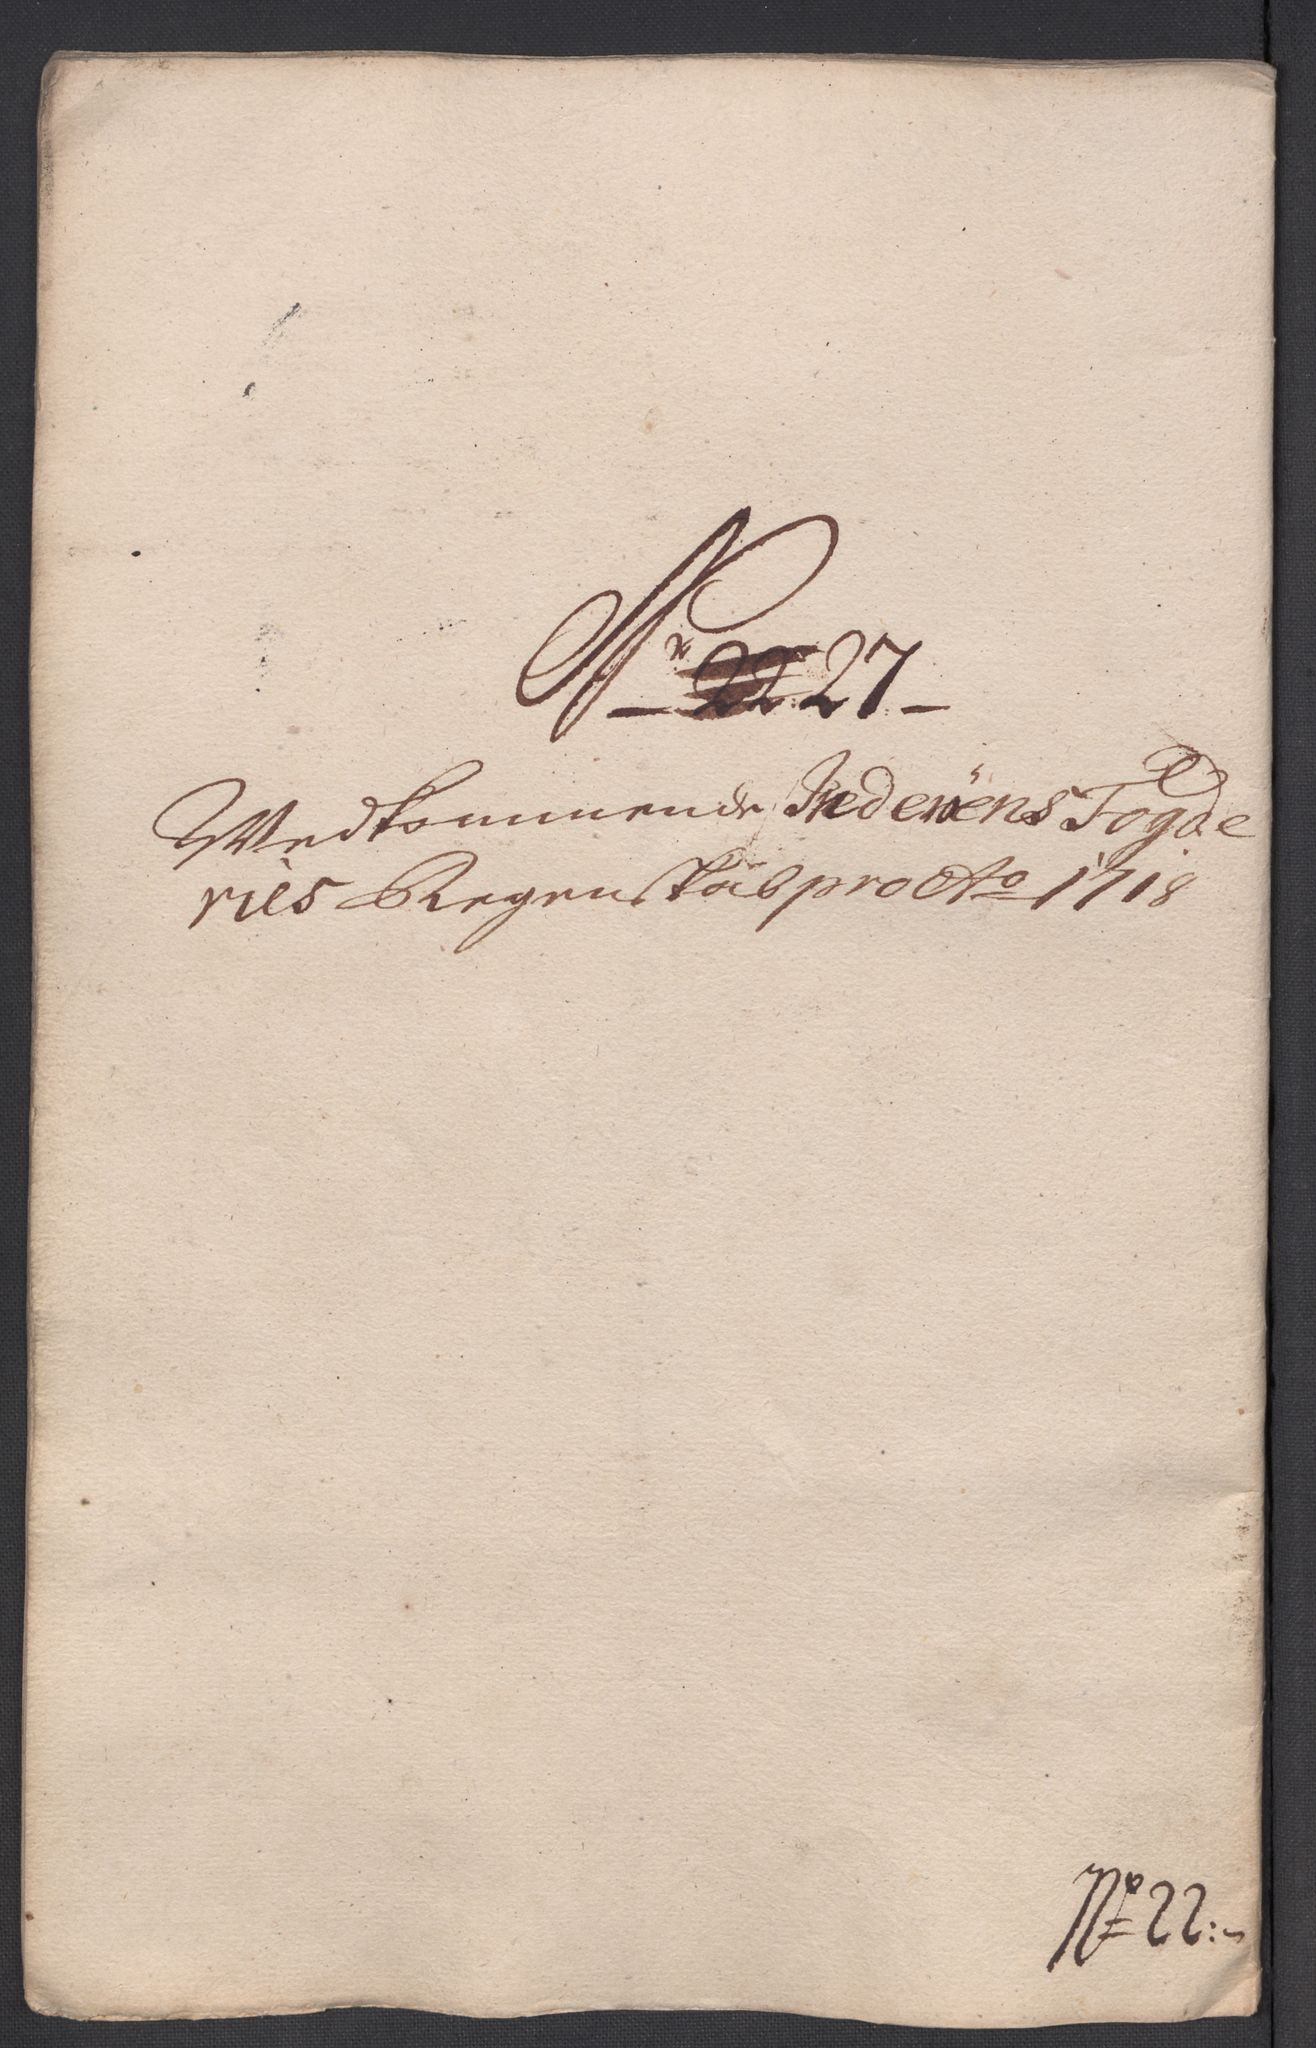 Nr 22 27
Vedkommende Inderöens Fogde
ries Regenskab pro Ao 1718
No 22: